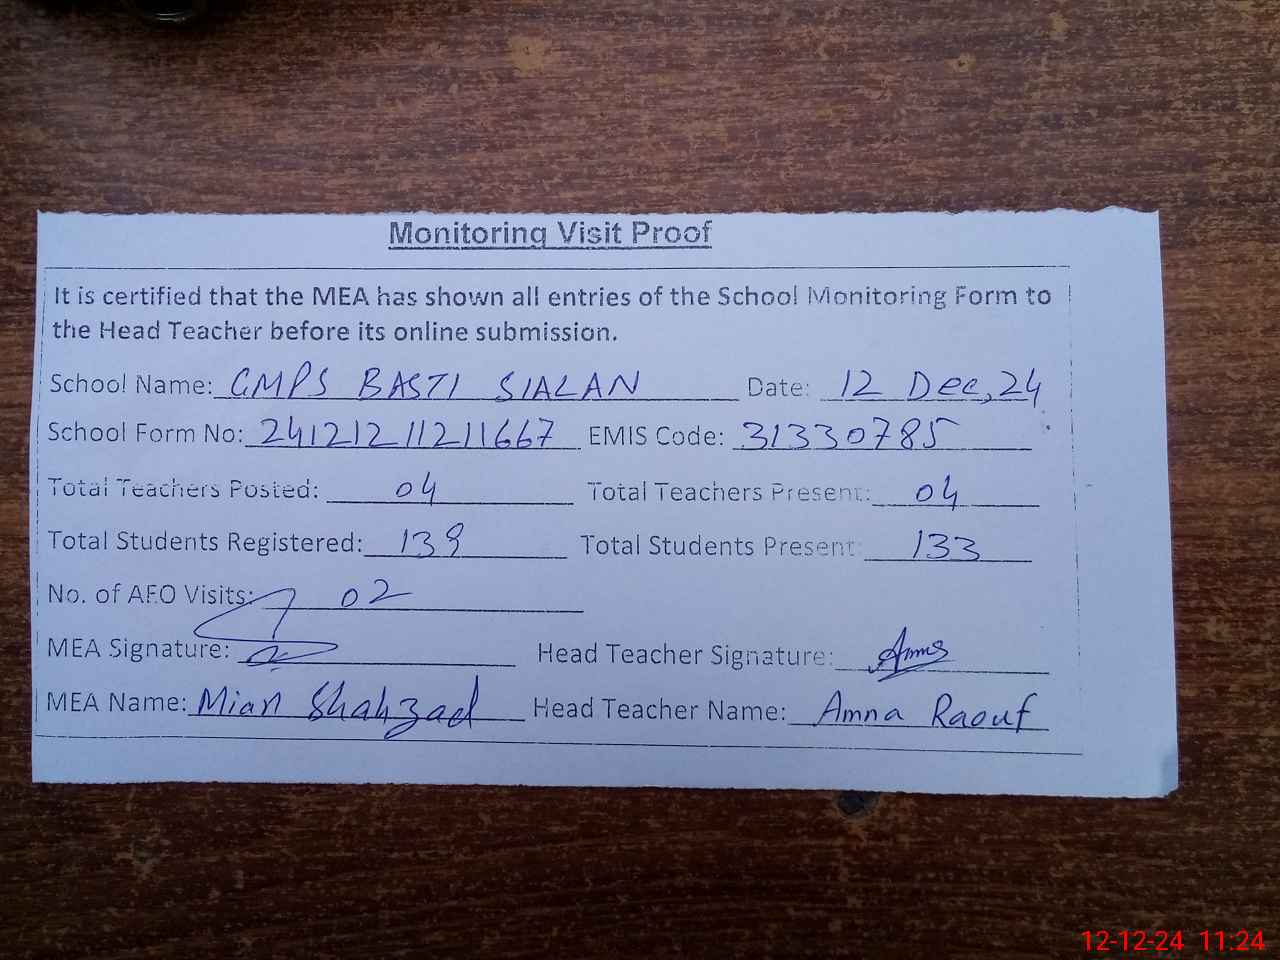 Monitoring Visit Proof
It is certified that the MEA has shown all entries of the School Monitoring Form to
the Head Teacher before its online submission.
School Name: GMPS BASTI SIALAN Date: 12 Dec, 24
School Form No: 24121211211667 EMIS Code: 31330785
Total Teachers Posted: 04 Total Teachers Present: 04
Total Students Registered: 139 Total Students Present: 133
No. of AEO Visits: 02
MEA Signature: Head Teacher Signature:
MEA Name: Mian Shahzad Head Teacher Name: Amna Raouf
12-12-24 11:24